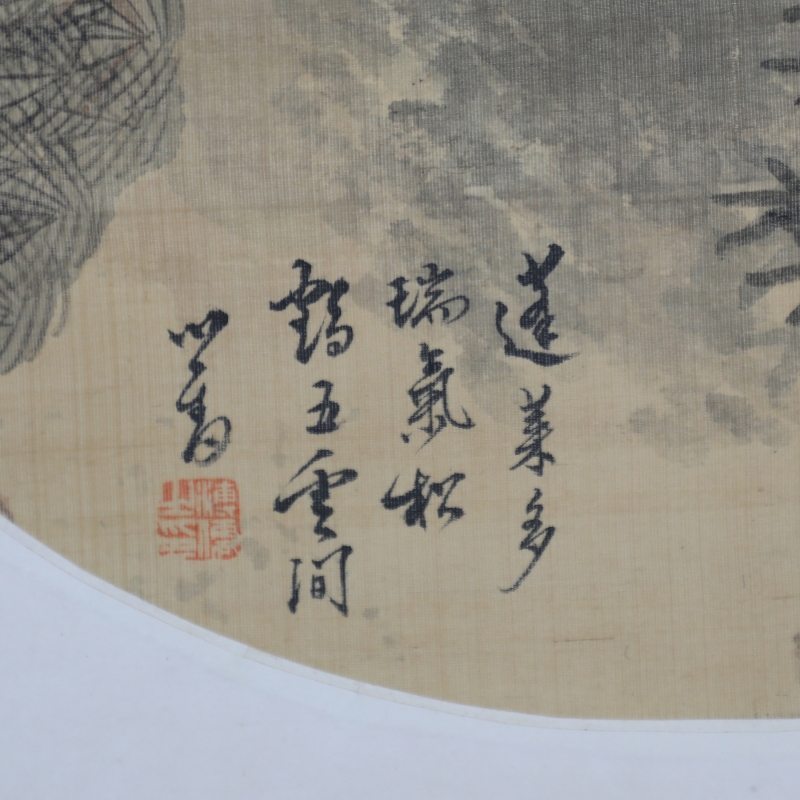 蓬萊多
瑞氣松
鶴五雲間
心畬
溥儒之印